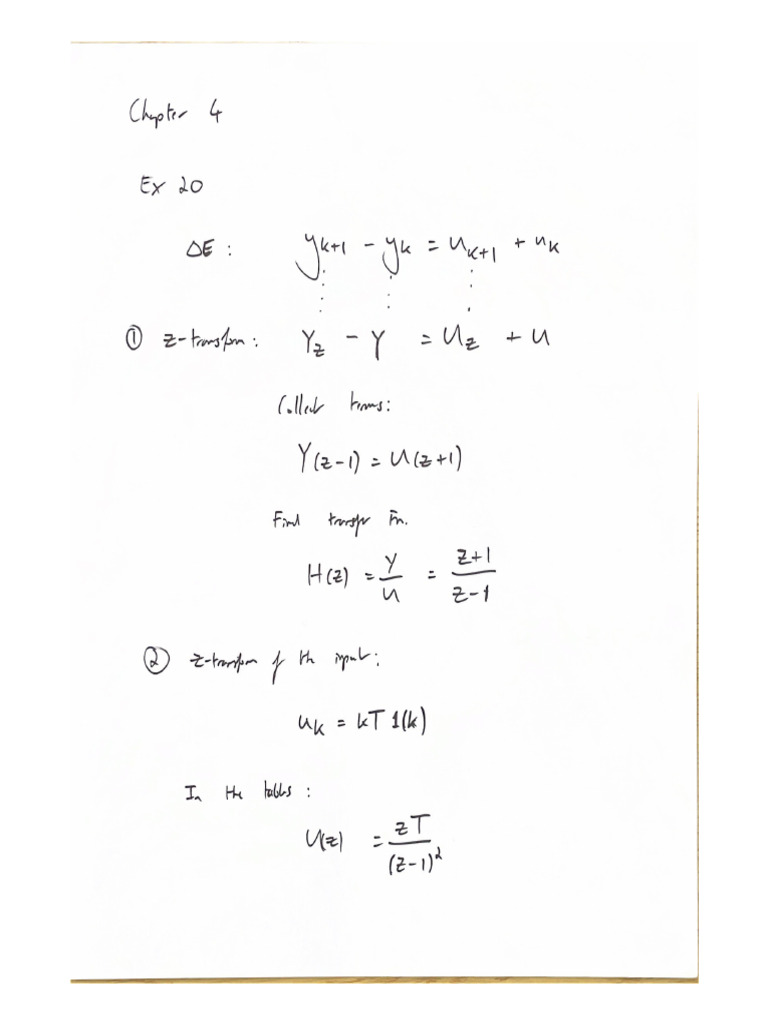 Chapter 4
Ex 20
ΔE : y_{k+1} - y_k = u_{k+1} + u_k
① z-transform : Yz - Y = Uz + U
Collect terms:
Y(z-1) = U(z+1)
Find transfer Fn.
H(z) = Y/U = (z+1)/(z-1)
② z-transform of the input:
u_k = kT 1(k)
In the tables :
U(z) = zT/(z-1)²